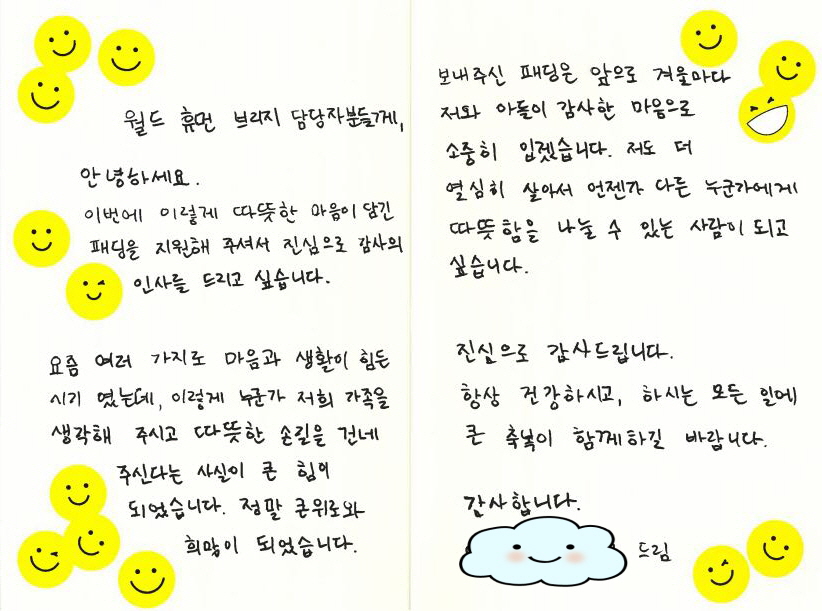 월드 휴먼 브리지 담당자분들께,
안녕하세요.
이번에 이렇게 따뜻한 마음이 담긴
패딩을 지원해 주셔서 진심으로 감사의
인사를 드리고 싶습니다.
요즘 여러 가지로 마음과 생활이 힘든
시기 였는데, 이렇게 누군가 저희 가족을
생각해 주시고 따뜻한 손길을 건네
주신다는 사실이 큰 힘이
되었습니다. 정말 큰위로와
희망이 되었습니다.
보내주신 패딩은 앞으로 겨울마다
저와 아들이 감사한 마음으로
소중히 입겠습니다. 저도 더
열심히 살아서 언젠가 다른 누군가에게
따뜻함을 나눌 수 있는 사람이 되고
싶습니다.
진심으로 감사드립니다.
항상 건강하시고, 하시는 모든 일에
큰 축복이 함께하길 바랍니다.
감사합니다.
드림